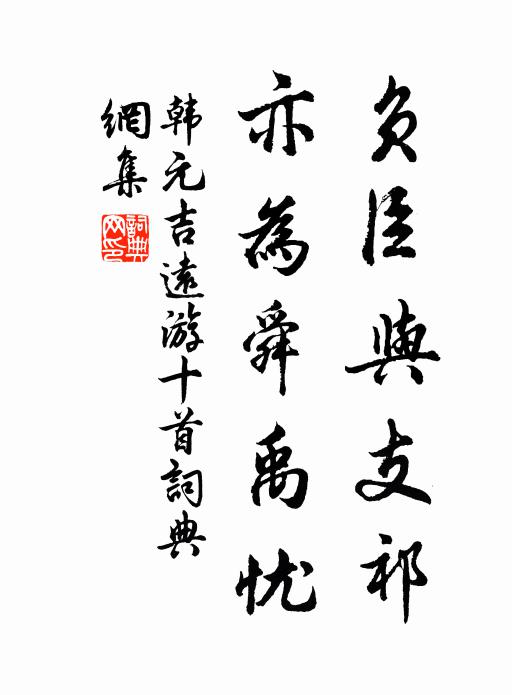 負臣與支祁
亦為舜禹忧
韩元吉遠游十首詞典
網集
詞典
网印